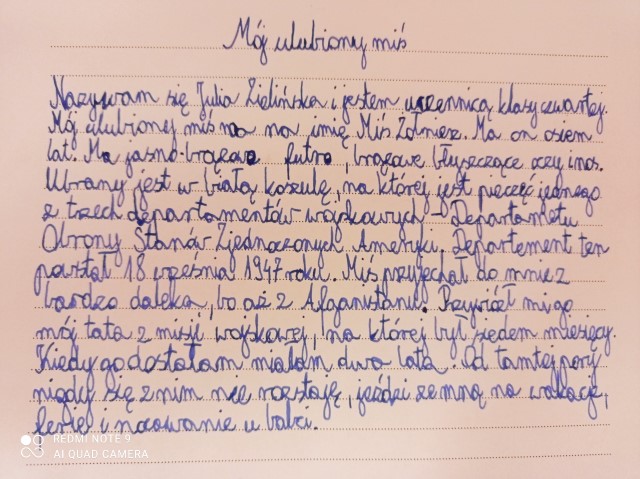 Mój ulubiony miś
Nazywam się Julia Zielińska i jestem uczennicą klasy czwartej.
Mój ulubionej miś na na imię Miś Żołnierz. Ma on osiem
lat. Ma jasno-brązowe futro, brązowe błyszczące oczy i nos.
Ubrany jest w białą koszulę, na której jest pieczęć jednego
z trzech departamentów wojskowych - Departametu
Obrony Stanów Zjednoczonych Ameryki. Departement ten
powstał 18 września 1947 roku. Miś przyjechał do mnie z
bardzo daleka, bo aż z Afganistanu. Przywiózł mi go
mój tata z misji wojskowej, na której był siedem miesięcy.
Kiedy go dostałam miałam dwa lata. Od tamtej pory
nigdy się z nim nie rozstaję, jeździ ze mną na wakacje,
ferie i nocowanie u babci.
REDMI NOTE 9
AI QUAD CAMERA